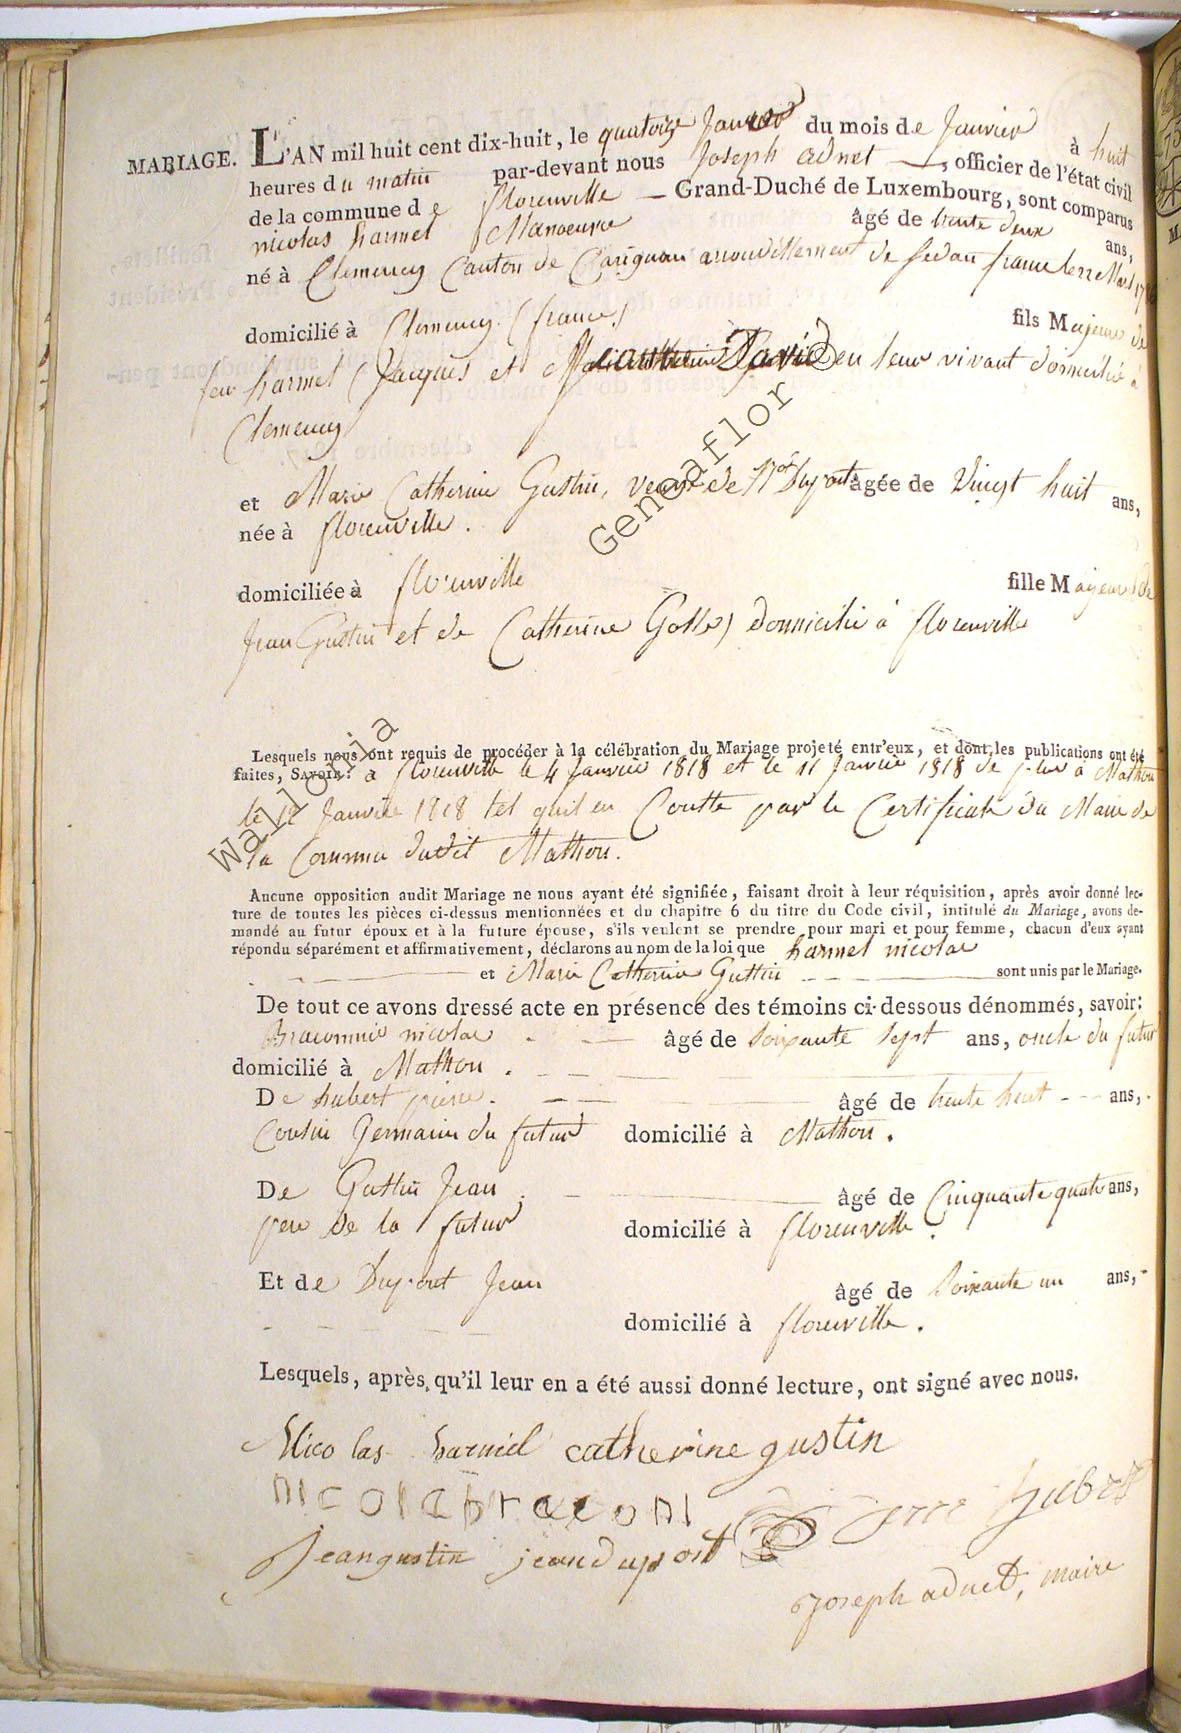 MARIAGE. L'AN mil huit cent dix-huit, le quatorze Janvier du mois de Janvier à huit
heures du matin par-devant nous Joseph adnet, officier de l'état civil
de la commune de florenville Grand-Duché de Luxembourg, sont comparus
nicolas harmel Manoeuvre âgé de trente deux ans,
né à Clemency Canton de Carignan arrondissement de Sedan france le 22 Mars
domicilié à Clemency (france) fils Majeur de
feu harmel Jacques et David en leur vivant domicilié à
Clemency
et Marie Catherine Gustin, veuve de Dupont âgée de Vingt huit ans,
née à florenville.
domiciliée à florenville fille Majeure de
Jean Gustin et de Catherine domicilié à florenville
Lesquels nous ont requis de procéder à la célébration du Mariage projeté entr'eux, et dont les publications ont été
faites, SAVOIR: à florenville le 4 Janvier 1818 et le 11 Janvier 1818 de plus à Mathon
le Janvier 1818 tel qu'il en Conste par le Certificat du Maire de
la Commune dudit Mathon.
Aucune opposition audit Mariage ne nous ayant été signifiée, faisant droit à leur réquisition, après avoir donné lec-
ture de toutes les pièces ci-dessus mentionnées et du chapitre 6 du titre du Code civil, intitulé du Mariage, avons de-
mandé au futur époux et à la future épouse, s'ils veulent se prendre pour mari et pour femme, chacun d'eux ayant
répondu séparément et affirmativement, déclarons au nom de la loi que harmel nicolas
et Marie Catherine Gustin sont unis par le Mariage.
De tout ce avons dressé acte en présence des témoins ci-dessous dénommés, savoir:
Braconnier nicolas âgé de soixante sept ans, oncle du futur
domicilié à Mathon.
De hubert pierre. âgé de trente huit ans,
Cousin Germain du futur domicilié à Mathon.
De Gustin Jean âgé de Cinquante quatre ans,
pere de la futur domicilié à florenville.
Et de Dupont Jean âgé de Soixante un ans,
domicilié à florenville.
Lesquels, après qu'il leur en a été aussi donné lecture, ont signé avec nous.
Nicolas harmel catherine gustin
nicolabraconi pierre hubert
Jeangustin jean dupont
Joseph adnet, maire
Geneaflor
Wallonia